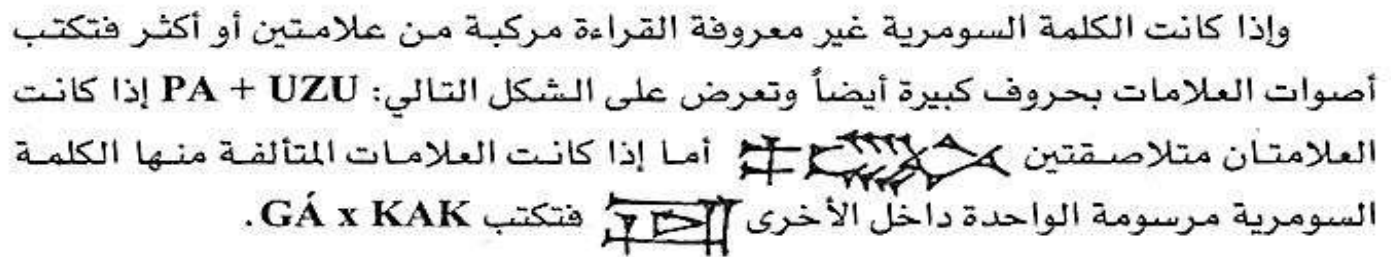 وإذا كانت الكلمة السومرية غير معروفة القراءة مركبة من علامتين أو أكثر فتكتب
أصوات العلامات بحروف كبيرة أيضاً وتعرض على الشكل التالي: PA + UZU إذا كانت
العلامتان متلاصقتين أما إذا كانت العلامات المتألفة منها الكلمة
السومرية مرسومة الواحدة داخل الأخرى فتكتب GÁ x KAK.